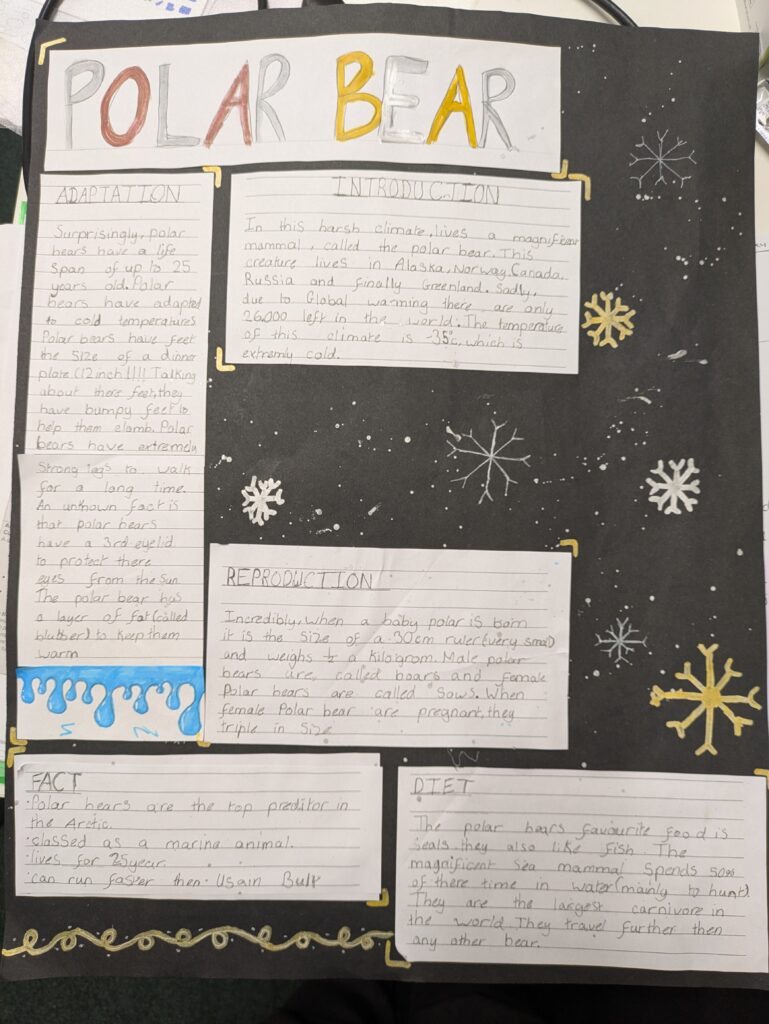 POLAR BEAR
ADAPTATION
Surprisingly, polar
bears have a life
span of up to 25
years old. Polar
bears have adapted
to cold temperatures
Polar bears have feet
the size of a dinner
plate (12 inch)!!!! Talking
about there feet, they
have bumpy feet to
help them climb. Polar
bears have extremely
Strong legs to walk
for a long time.
An unknown fact is
that polar bears
have a 3rd eyelid
to protect there
eyes from the sun
The polar bear has
a layer of fat (called
blubber) to keep them
warm
INTRODUCTION
In this harsh climate, lives a magnificent
mammal, called the polar bear. This
creature lives in Alaska, Norway, Canada,
Russia and finally Greenland. Sadly,
due to Global warming there are only
26,000 left in the world. The temperature
of this climate is -35°c, which is
extremly cold.
REPRODUCTION
Incredibly, when a baby polar is born
it is the size of a 30cm ruler (very small)
and weighs ½ a kilogrom. Male polar
bears are called boars and female
Polar bears are called Sows. When
female Polar bear are pregnant, they
triple in size
FACT
·Polar bears are the top preditor in
the Arctic.
·classed as a marine animal.
·lives for 25year.
·can run faster then Usain Bult
DIET
The polar bears favourite food is
seals, they also like fish. The
magnificent sea mammal spends 50%
of there time in water (mainly to hunt).
They are the largest carnivore in
the world. They travel further then
any other bear.